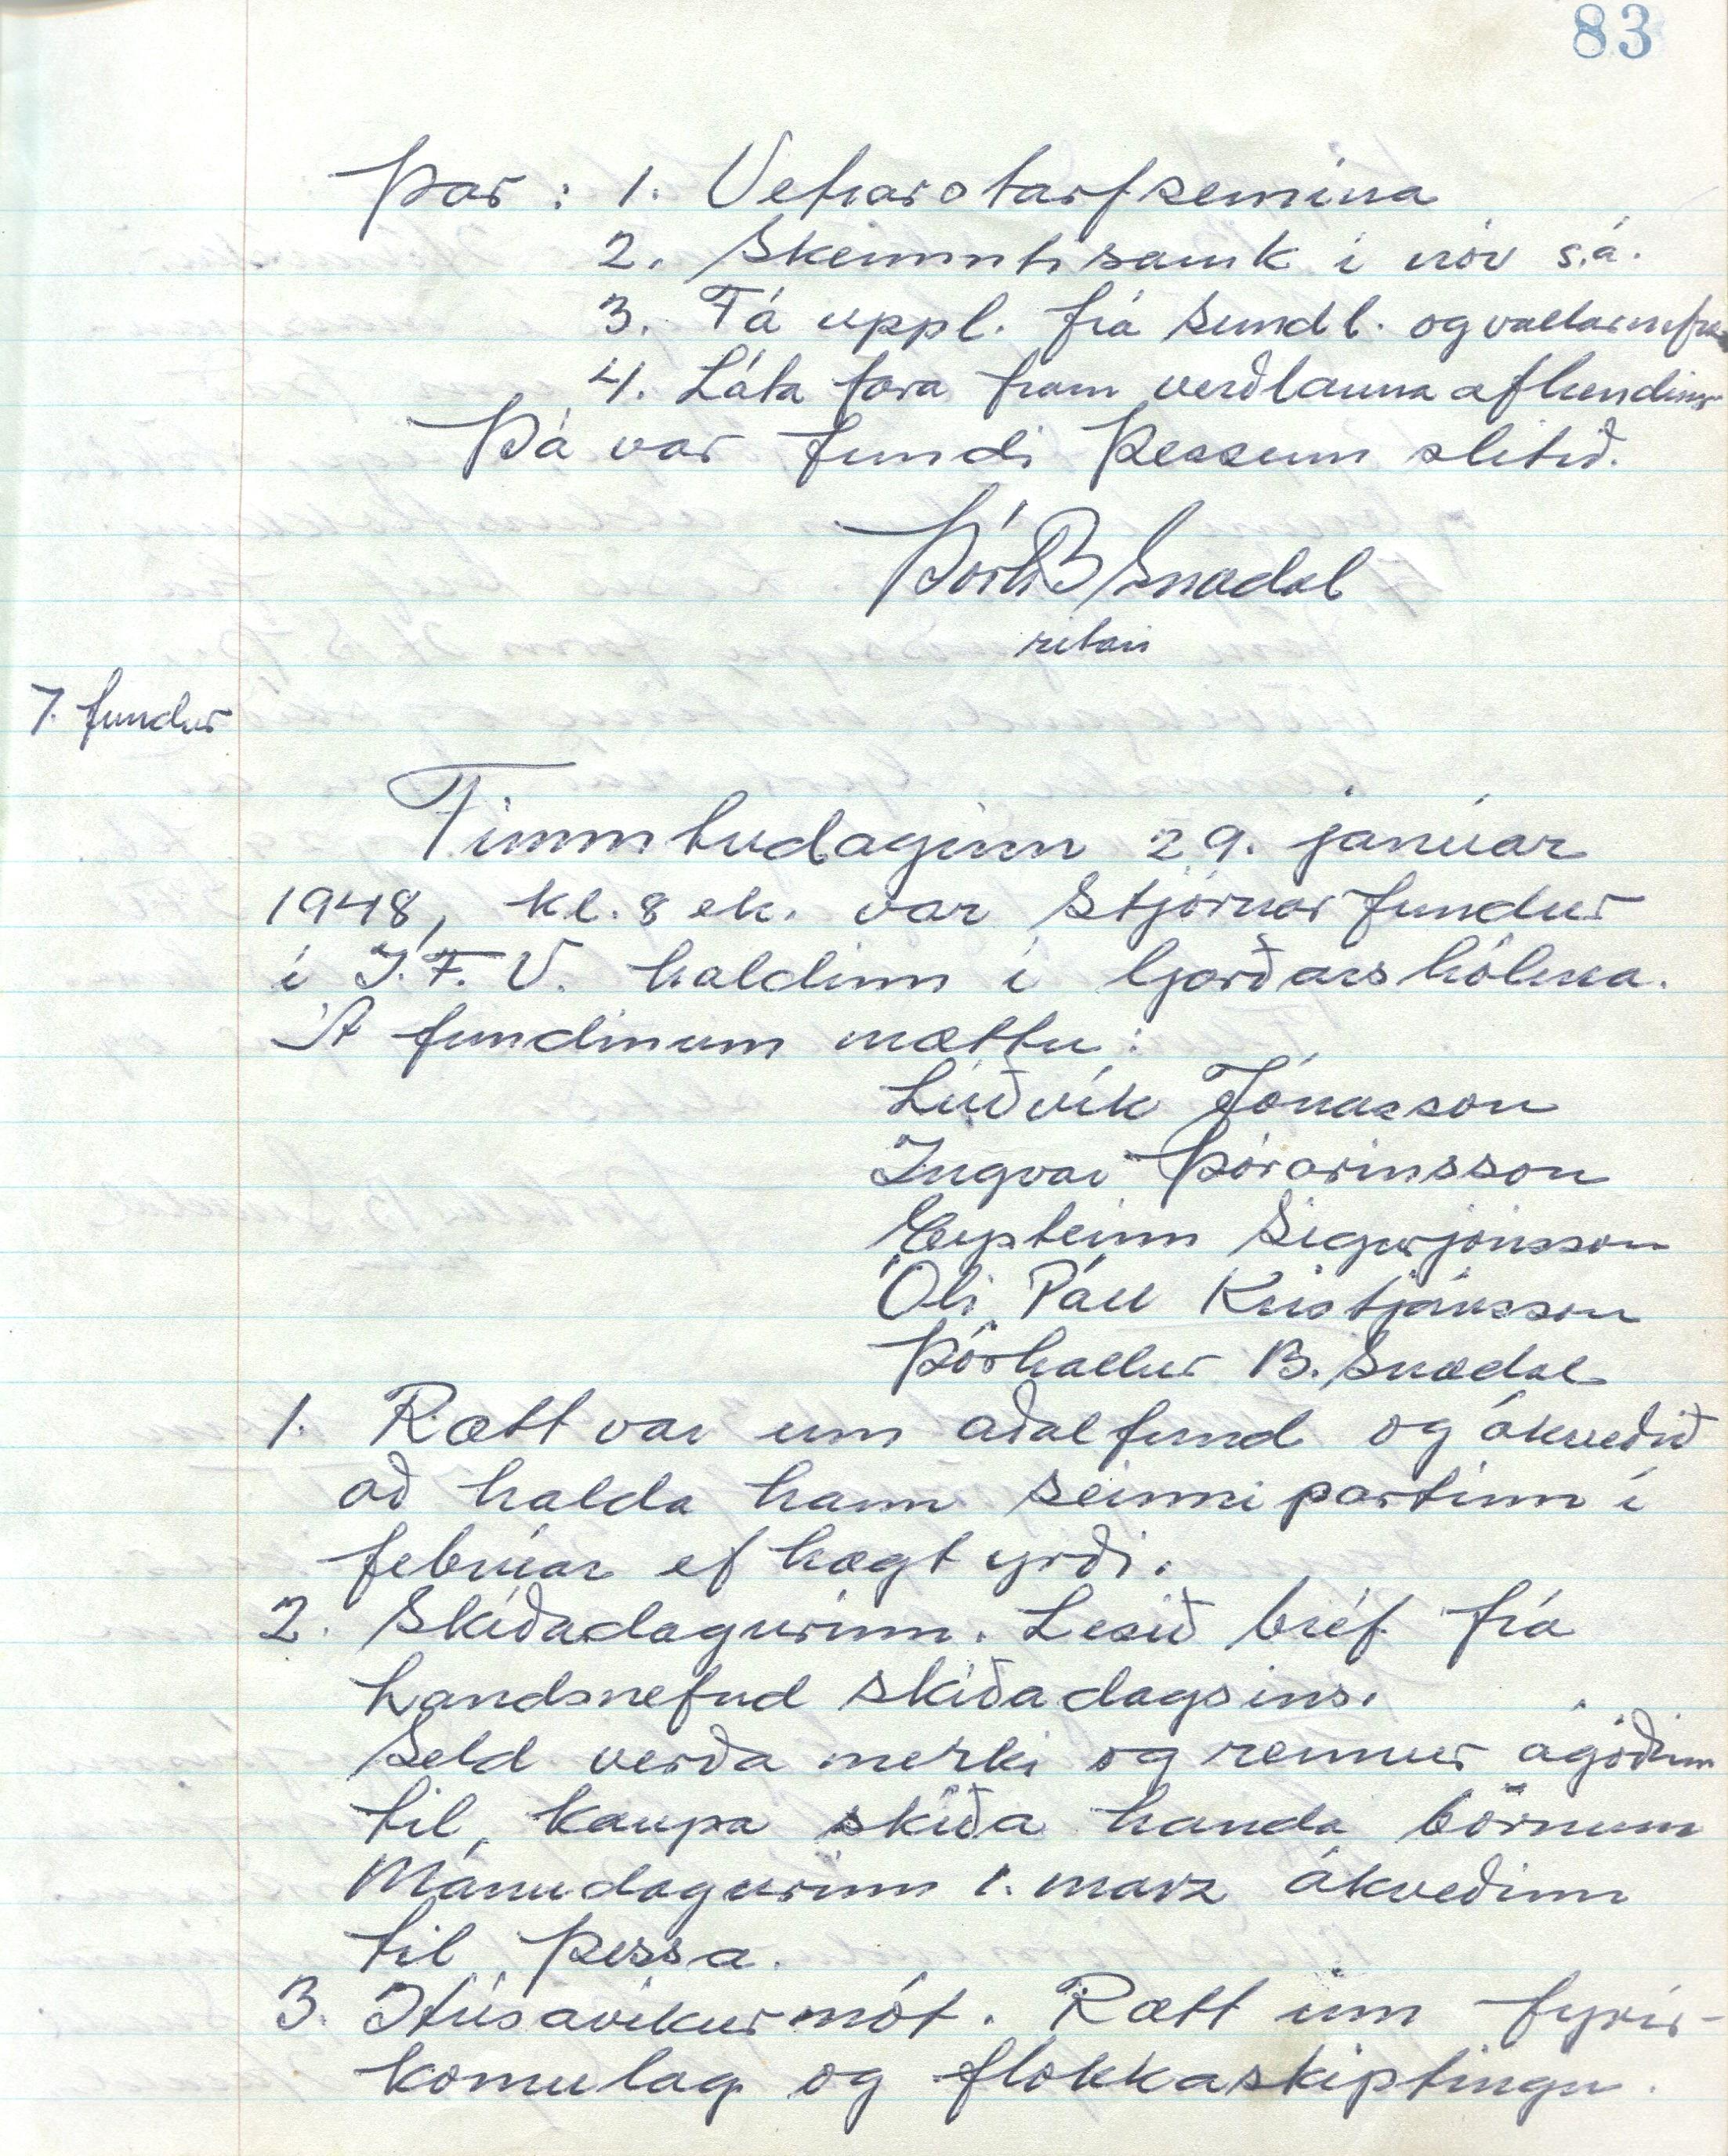 83
Þar : 1. Vetrarstarfsemina
2. Skemmtisamk í nóv s.á.
3. Fá uppl. frá Sundl. og vallarnefn
4. Láta fara fram verðlauna afhending
Þá var fundi þessum slitið.
Þórh B Snædal
ritari
7. fundur
Fimmtudaginn 29. janúar
1948, kl. 8 eh. var Stjórnarfundur
í Í.F.V. haldinn í Garðarshólma.
Á fundinum mættu:
Lúðvík Jónasson
Ingvar Þórarinsson
Eysteinn Sigurjónsson
Óli Páll Kristjánsson
Þórhallur B. Snædal
1. Rætt var um aðalfund og ákveðið
að halda hann seinni partinn í
febrúar ef hægt yrði.
2. Skíðadagurinn. Lesið bréf frá
Landsnefnd skíðadagsins.
Seld verða merki og rennur ágóðinn
til kaupa skíða handa börnum
Mánudagurinn 1. marz ákveðinn
til þessa.
3. Húsavíkurmót. Rætt um fyrir-
komulag og flokkaskiptingu.